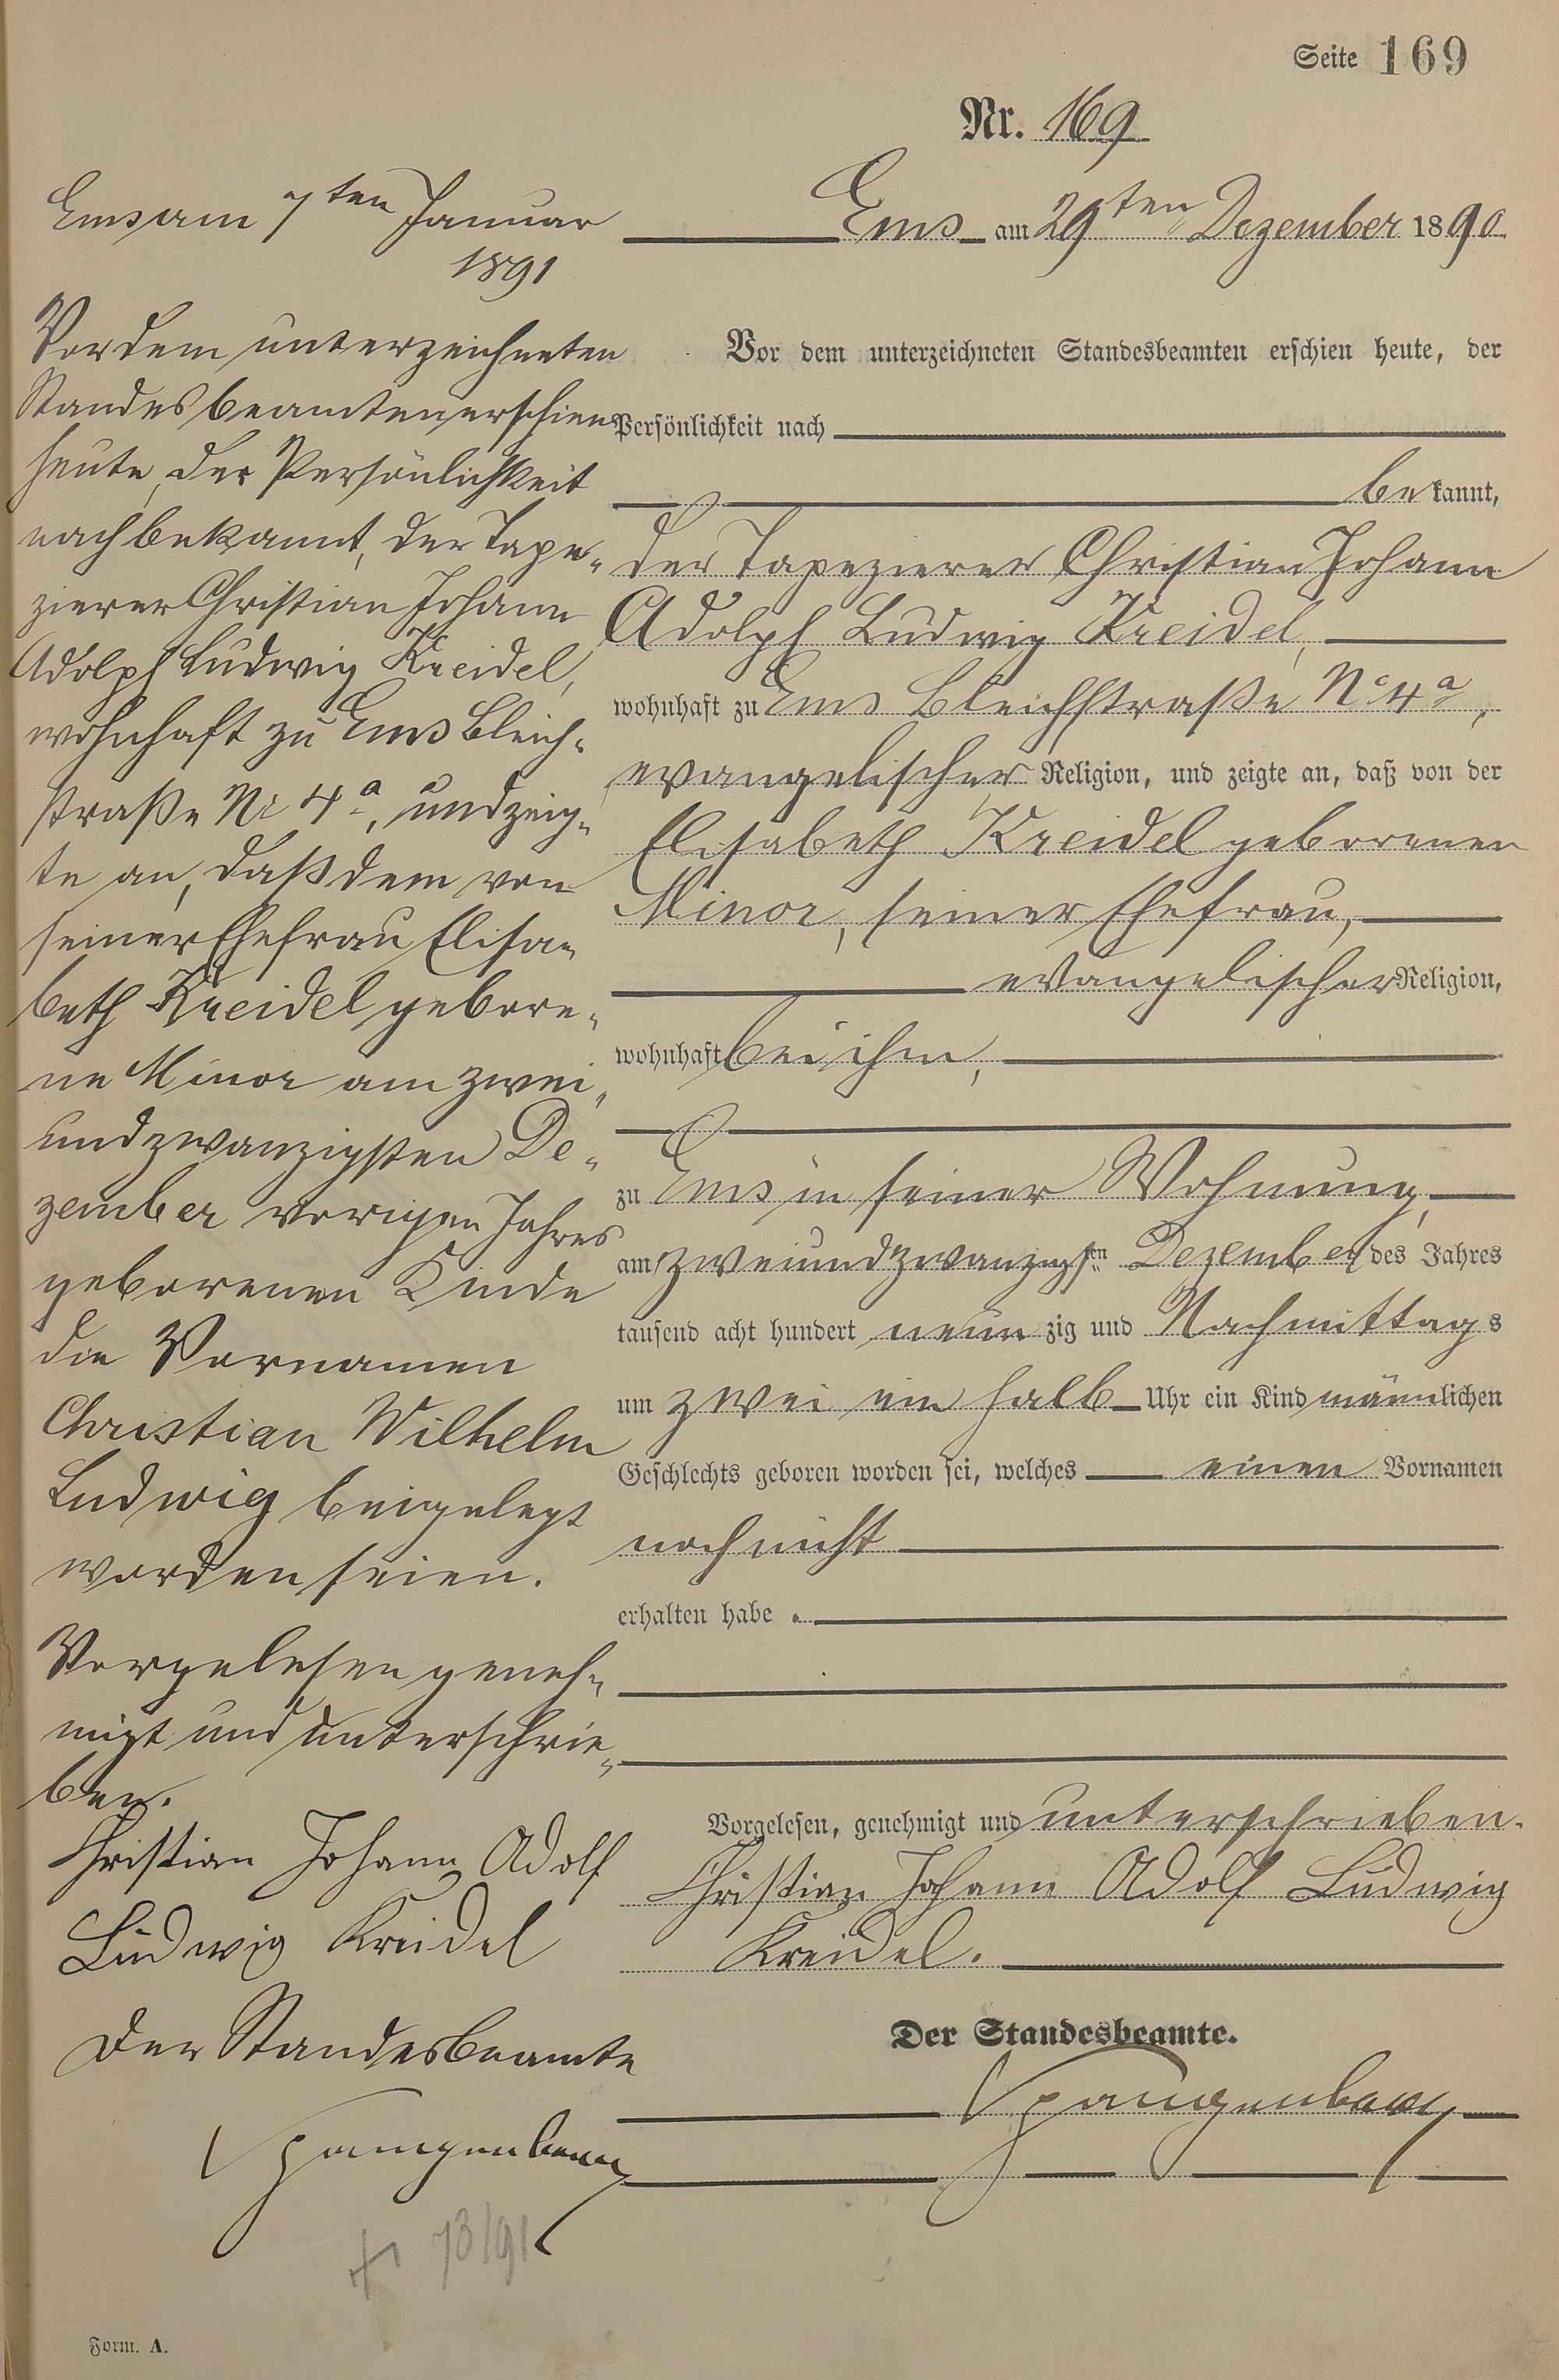 Seite 169
Nr. 169
Ems am 29ten Dezember 1890
Vor dem unterzeichneten Standesbeamten erschien heute, der
Persönlichkeit nach
bekannt,
der Tapezierer Christian Johann
Adolph Ludwig Kreidel,
wohnhaft zu Ems Bleichstraße No 4a,
evangelischer Religion, und zeigte an, daß von der
Elisabeth Kreidel geborenen
Minor, seiner Ehefrau,
evangelischer Religion,
wohnhaft bei ihm,
zu Ems in seiner Wohnung,
am zweiundzwanzigsten Dezember des Jahres
tausend acht hundert neunzig und Nachmittags
um zwei ein halb Uhr ein Kind männlichen
Geschlechts geboren worden sei, welches einen Vornamen
noch nicht
erhalten habe.
Vorgelesen, genehmigt und unterschrieben.
Christian Johann Adolf Ludwig
Kreidel.
Der Standesbeamte.
Spangenberg
Ems am 7ten Januar
1891
Vor dem unterzeichneten
Standesbeamten erschien
heute, der Persönlichkeit
nach bekannt, der Tape-
zierer Christian Johann
Adolph Ludwig Kreidel,
wohnhaft zu Ems Bleich-
straße Nr 4a, und zeig-
te an, daß dem von
seiner Ehefrau Elisa-
beth Kreidel gebore-
ne Minor am zwei-
undzwanzigsten De-
zember vorigen Jahres
geborenen Kinde
die Vornamen
Christian Wilhelm
Ludwig beigelegt
worden seien.
Vorgelesen geneh-
migt und unterschrie-
ben.
Christian Johann Adolf
Ludwig Kreidel
Der Standesbeamte
Spangenberg
73/91
Form. A.